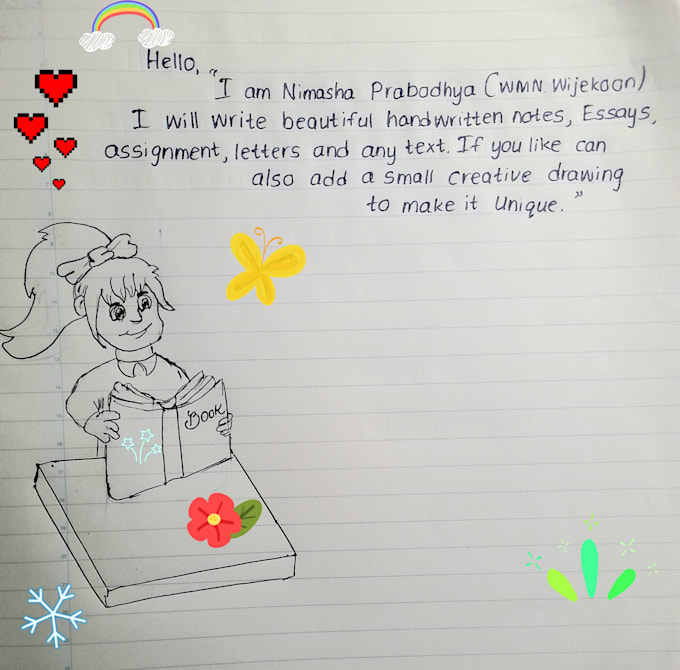 Hello,
"I am Nimasha Prabodhya (WMN Wijekoon)
I will write beautiful handwritten notes, Essays,
assignment, letters and any text. If you like can
also add a small creative drawing
to make it Unique."
BOOK